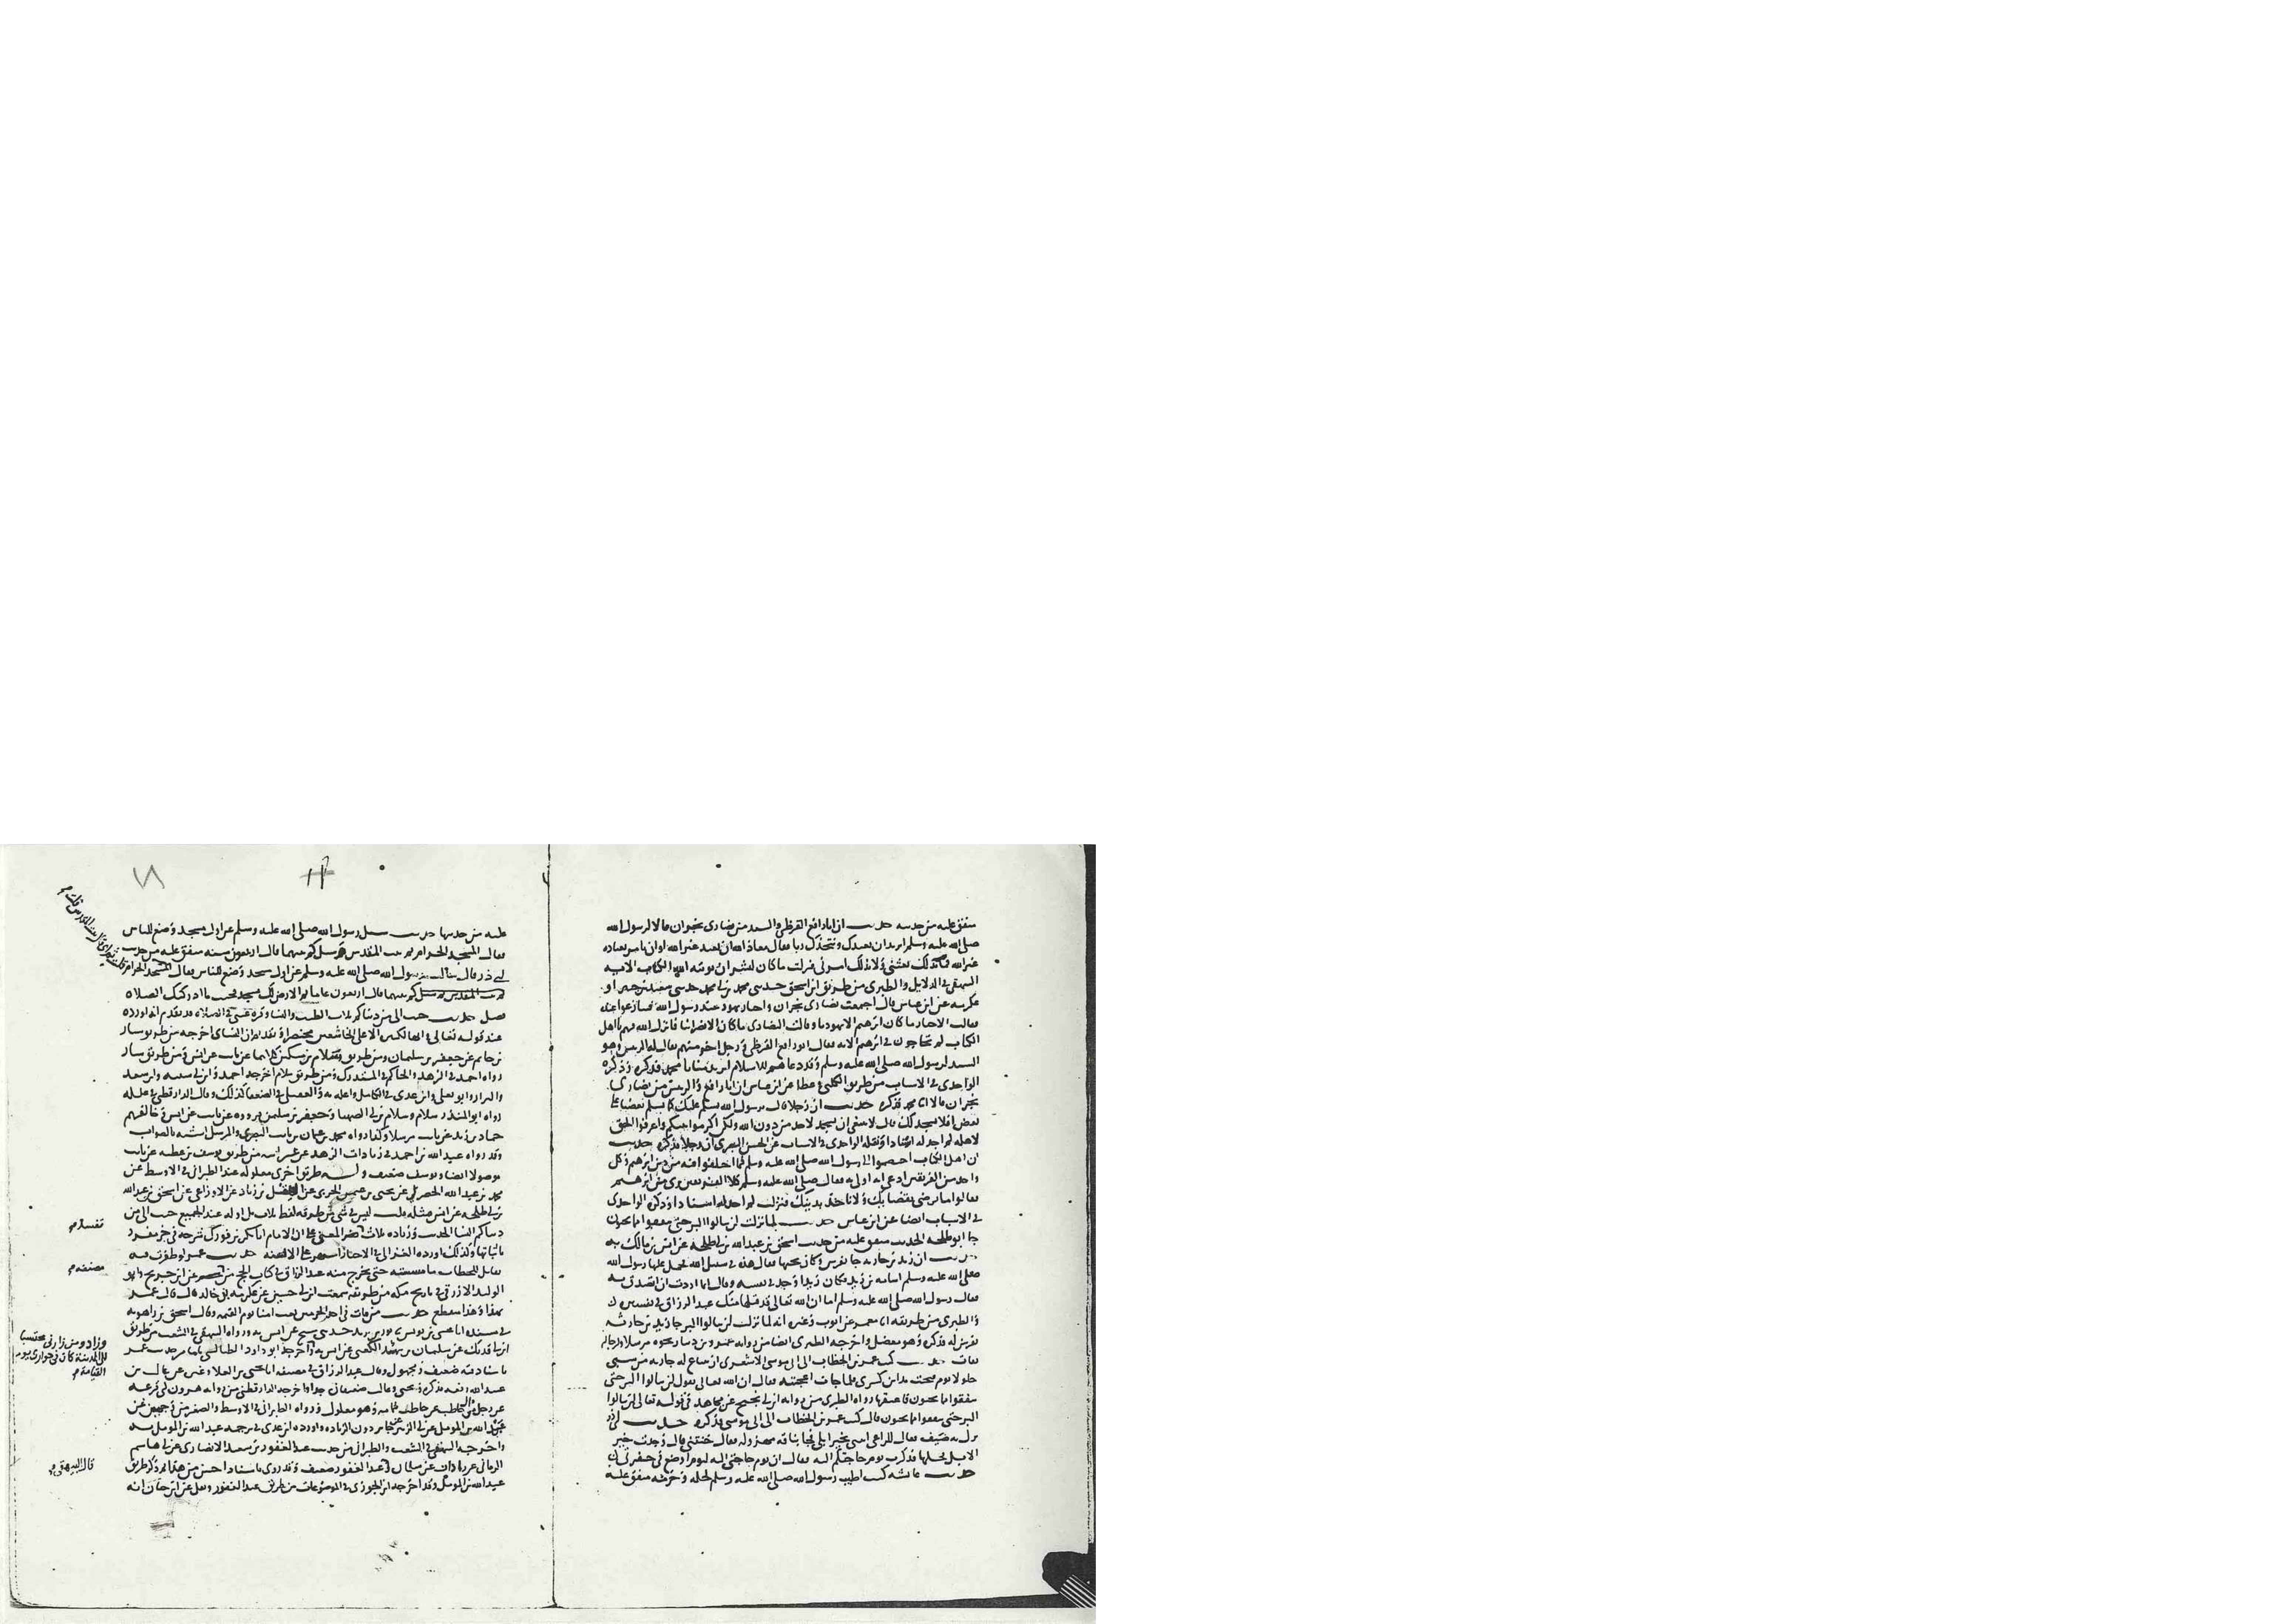 متفق عليه من حديثه حديث ان ابا رافع القرظي والسيد من نصارى نجران قالا لرسول الله
صلى الله عليه وسلم اتريد ان نعبدك ونتخذك ربا فقال معاذ الله ان نعبد غير الله او ان نامر بعباده
غير الله فما بذلك بعثني ولا بذلك امرني فنزلت ما كان لبشر ان يوتيه الله الكتاب الايه
البيهقي في الدلايل والطبري من طريق ابن اسحق حدثني محمد بن ابي محمد حدثني سعيد بن جبير او
عكرمه عن ابن عباس قال اجتمعت نصارى نجران واحبار يهود عند رسول الله فتنازعوا عنده
فقالت الاحبار ما كان ابرهيم الا يهوديا وقالت النصارى ما كان الا نصرانيا فانزل الله فيهم يا اهل
الكتاب لم تحاجون في ابرهيم الايه فقال ابو رافع القرظي ورجل اخر منهم يقال له الريس وهو
السيد لرسول الله صلى الله عليه وسلم وقد دعاهم للاسلام اتريد منا يا محمد فذكره وذكره
الواحدي في الاسباب من طريق الكلبي وعطا عن ابن عباس ان ابا رافع والريس من نصارى
نجران قالا يا محمد فذكره حديث ان رجلا قال يرسول الله نسلم عليك كما يسلم بعضنا على
بعض افلا نسجد لك قال لا ينبغي ان يسجد لاحد من دون الله ولكن اكرموا نبيكم واعرفوا الحق
لاهله لم اجد له اسنادا ونقله الواحدي في الاسباب عن الحسن البصري ان رجلا فذكره حديث
ان اهل الكتاب اختصموا الى رسول الله صلى الله عليه وسلم فيما اختلفوا فيه من دين ابرهيم وكل
واحد من الفريقين ادعى انه اولى به فقال صلى الله عليه وسلم كلا الفريقين بري من ابرهيم
فقالوا ما نرضى بقضايك ولا ناخذ بدينك فنزلت لم اجد له اسنادا وذكره الواحدي
في الاسباب ايضا عن ابن عباس حديث لما نزلت لن تنالوا البر حتى تنفقوا مما تحبون
جا ابو طلحه الحديث متفق عليه من حديث اسحق بن عبد الله بن ابي طلحه عن انس بن مالك به
حديث ان زيد بن حارثه جا بفرس وكان يحبها فقال هذه في سبيل الله فحمل عليها رسول الله
صلى الله عليه وسلم اسامه بن زيد فكان زيدا وجد في نفسه وقال انما اردت ان اتصدق به
فقال رسول الله صلى الله عليه وسلم اما ان الله تعالى قد قبلها منك عبد الرزاق في تفسيره
والطبري من طريقه انا معمر عن ايوب وغيره انه لما نزلت لن تنالوا البر جا زيد بن حارثه
بفرس له فذكره وهو معضل واخرجه الطبري ايضا من روايه عمرو بن دينار نحوه مرسلا ورجاله
ثقات حديث كتب عمر بن الخطاب الى ابي موسى الاشعري ان يبتاع له جاريه من سبي
جلولا يوم فتحت مداين كسرى فلما جات اعجبته فقال ان الله تعالى يقول لن تنالوا البر حتى
تنفقوا مما تحبون فاعتقها رواه الطبري من روايه ابن ابي نجيح عن مجاهد في قوله تعالى لن تنالوا
البر حتى تنفقوا مما تحبون قال كتب عمر بن الخطاب الى ابي موسى فذكره حديث ابي ذر
نزل به ضيف فقال للراعي ايتني بخير ابلي فجا بناقه مهزوله فقال خنتني قال وجدت خير
الابل فحلها فذكرت يوم حاجتكم اليه فقال ان يوم حاجتي اليه ليوم اوضع في حفرتي
حديث عايشه كنت اطيب رسول الله صلى الله عليه وسلم لحله وحرمه متفق عليه
عليه من حديثها حديث سيل رسول الله صلى الله عليه وسلم عن اول مسجد وضع للناس
فقال المسجد الحرام ثم بيت المقدس وسيل كم بينهما قال اربعون سنه متفق عليه من حديث
ابي ذر قال سالت رسول الله صلى الله عليه وسلم عن اول مسجد وضع للناس فقال المسجد الحرام
ثم بيت المقدس سيل كم بينهما قال اربعون عاما ثم الارض لك مسجد فحيث ما ادركتك الصلاه
فصل حديث حبب الي من دنياكم ثلاث الطيب والنسا وقره عيني في الصلاه قد تقدم انه اورده
عند قوله تعالى وانها لكبيره الا على الخاشعين مختصرا وتقدم ان النساي اخرجه من طريق سيار
بن حاتم عن جعفر بن سليمان ومن طريق سلام بن مسكين كلاهما عن ثابت عن انس ومن طريق سيار
رواه احمد في الزهد والحاكم في المستدرك ومن طريق سلام اخرجه احمد وابن ابي شيبه وابن سعد
والبزار وابو يعلى وابن عدي في الكامل واعله به والعقيلي في الضعفا كذلك وقال الدارقطني في علله
رواه ابو المنذر سلام وسلام بن ابي الصهبا وجعفر بن سليمن فرووه عن ثابت عن انس وخالفهم
حماد بن زيد عن ثابت مرسلا وكذا رواه محمد بن عثمان بن ثابت البصري والمرسل اشبه بالصواب
وقد رواه عبد الله بن احمد في زيادات الزهد عن غير ابيه من طريق يوسف بن عطيه عن ثابت
موصولا ايضا ويوسف ضعيف وله طريق اخرى معلوله عند الطبراني في الاوسط عن
محمد بن عبد الله الحضرمي عن يحيى بن عثمن الحربي عن الهقل بن زياد عن الاوزاعي عن اسحق بن عبد الله
بن ابي طلحه عن انس مثله قلت ليس في شي من طرقه لفظ ثلاث بل اوله عند الجميع حبب الي من
دنياكم النسا الحديث وزياده ثلاث تفسد المعنى على ان الامام ابا بكر بن فورك شرحه في جز مفرد
باثباتها وكذلك اورده الغزالي في الاحيا واشتهر على الالسنه حديث عمر لو ظفرت فيه
بقاتل الخطاب ما مسسته حتى يخرج منه عبد الرزاق في كتاب الحج من عن ابن جريج وابو
الوليد الازرقي في تاريخ مكه من طريقه سمعت ابن ابي حسين عن عكرمه بن خالد قال قال عمر
بهذا وهذا منقطع حديث من مات في احد الحرمين بعث امنا يوم القيمه وقال اسحق بن راهويه
في مسنده انا عيسى بن يونس ثنا ثور بن يزيد حدثني شيخ عن انس به ورواه البيهقي في الشعب من طريق
ابن ابي فديك عن سليمان بن يزيد الكعبي عن انس به واخرجه ابو داود الطيالسي من حديث عمر
باسناد فيه ضعيف ومجهول وقال عبد الرزاق في مصنفه انا يحيى بن العلا وغيره عن غالب بن
عبيد الله رفعه فذكره ويحيى وغالب ضعيفان جدا واخرجه الدارقطني من روايه هرون ابي قزعه
عن رجل من ال حاطب عن حاطب وهو معلول ورواه الطبراني في الاوسط والصغير من وجهين عن
عبد الله بن المومل عن ابي الزبير عن جابر دون الزياده واورده ابن عدي في ترجمه عبد الله بن المومل به
واخرجه البيهقي في الشعب والطبراني من حديث عبد الغفور بن سعيد الانصاري عن ابي هاشم
الرماني عن زاذان عن سلمان عبد الغفور ضعيف وقد روي باسناد احسن من هذا ثم ذكر طريق
عبد الله بن المومل وقد اخرجه ابن الجوزي في الموضوعات من طريق عبد الغفور ونقل عن ابن حبان انه
تفسد م
مصنفه م
وزاد ومن زارني محتسبا
الى المدينة كان في جواري يوم
القيامة م
قال البيهقي م